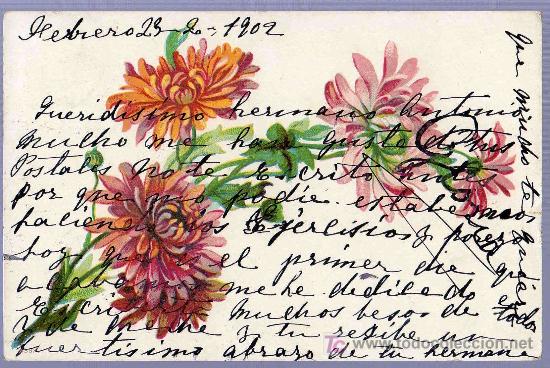 Febrero 23-2-1902
Queridisimo hermano Antonio
mucho me han gustado tus
Postales no te Escrito antes
por que no podie estabamos
haciendo los Ejerlisios y
hoy que es el primer die que
acabamos me he didicado
Escribir muchos besos de todo
y de meche y tu recibe un
fuertisimo abrazo de tu hermana
que mucho te quiere
todocoleccion.net